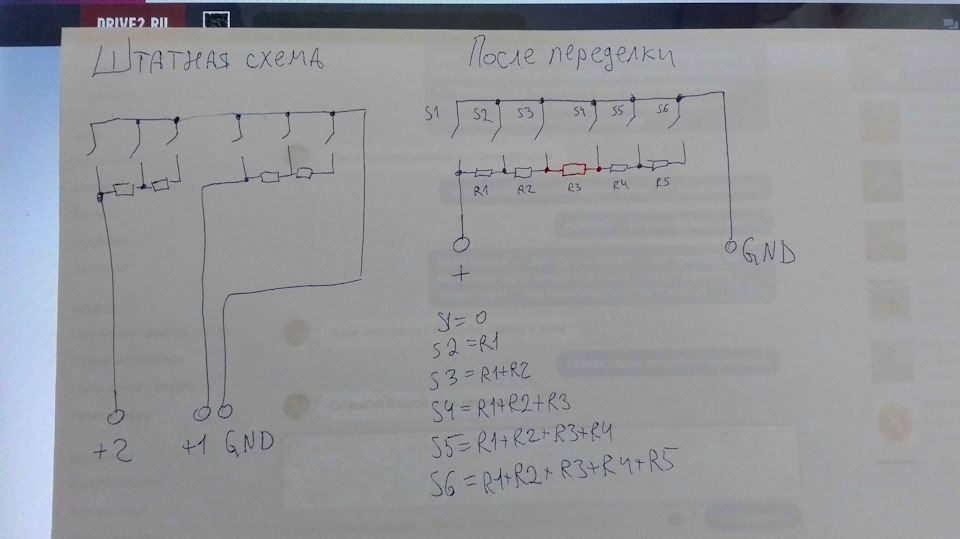 DRIVE2.RU
Штатная схема
После переделки
S1 S2 S3 S4 S5 S6
R1 R2 R3 R4 R5
+
GND
S1 = 0
S2 = R1
S3 = R1+R2
S4 = R1+R2+R3
S5 = R1+R2+R3+R4
S6 = R1+R2+R3+R4+R5
+2 +1 GND